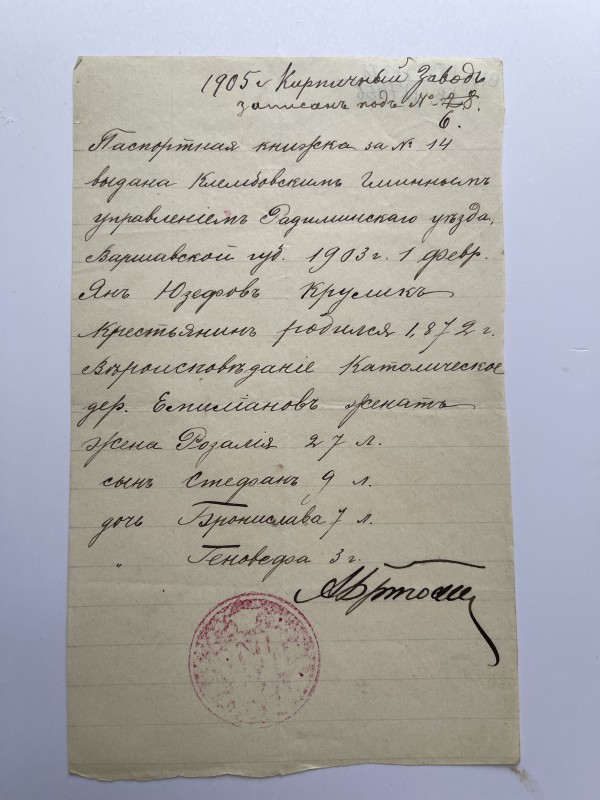 1905 г Кирпичный Заводъ
записанъ подъ № 28.
6.
Паспортная книжка за № 14
выдана Клембовскимъ Гминнымъ
управленіемъ Радиминскаго уѣзда,
Варшавской губ. 1903 г. 1 февр.
Янъ Юзефовъ Круликъ
Крестьянинъ родился 1872 г.
Вѣроисповѣданіе Католическое
дер. Емиліановъ женатъ
жена Розалія 27 л.
сынъ Стефанъ 9 л.
дочь Бронислава 7 л.
" Геновефа 3 г.